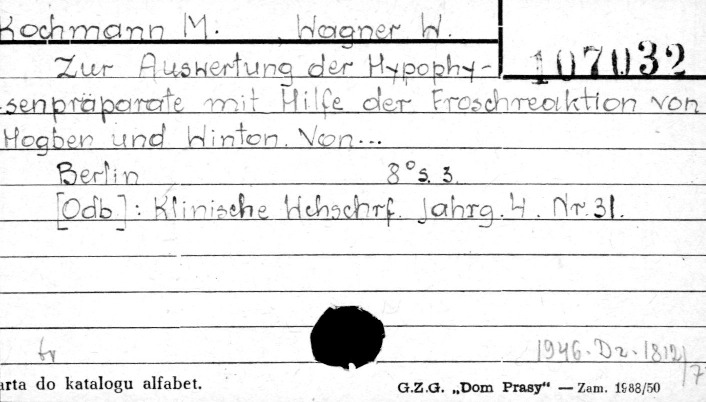 Kochmann M. , Wagner W.
107032
Zur Auswertung der Hypophy-
senpräparate mit Hilfe der Froschreaktion von
Hogben und Winton. Von...
Berlin 8° s. 3.
[Odb.]: Klinische Wchschrf. Jahrg. 4. Nr. 31.
1946. Dz. 1812/
arta do katalogu alfabet.
G.Z.G. „Dom Prasy“ — Zam. 1988/50